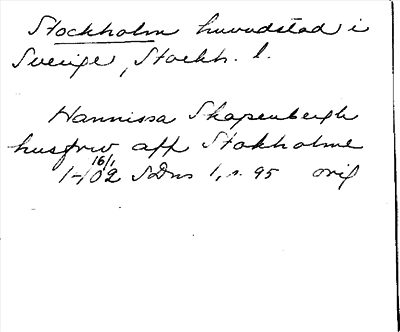 Stockholm huvudstad i
Sverige, Stockh. l.
Hannissa Skapenbergh
husfrw aff Stokholme
16/1
1402 SDns 1, s. 95 orig